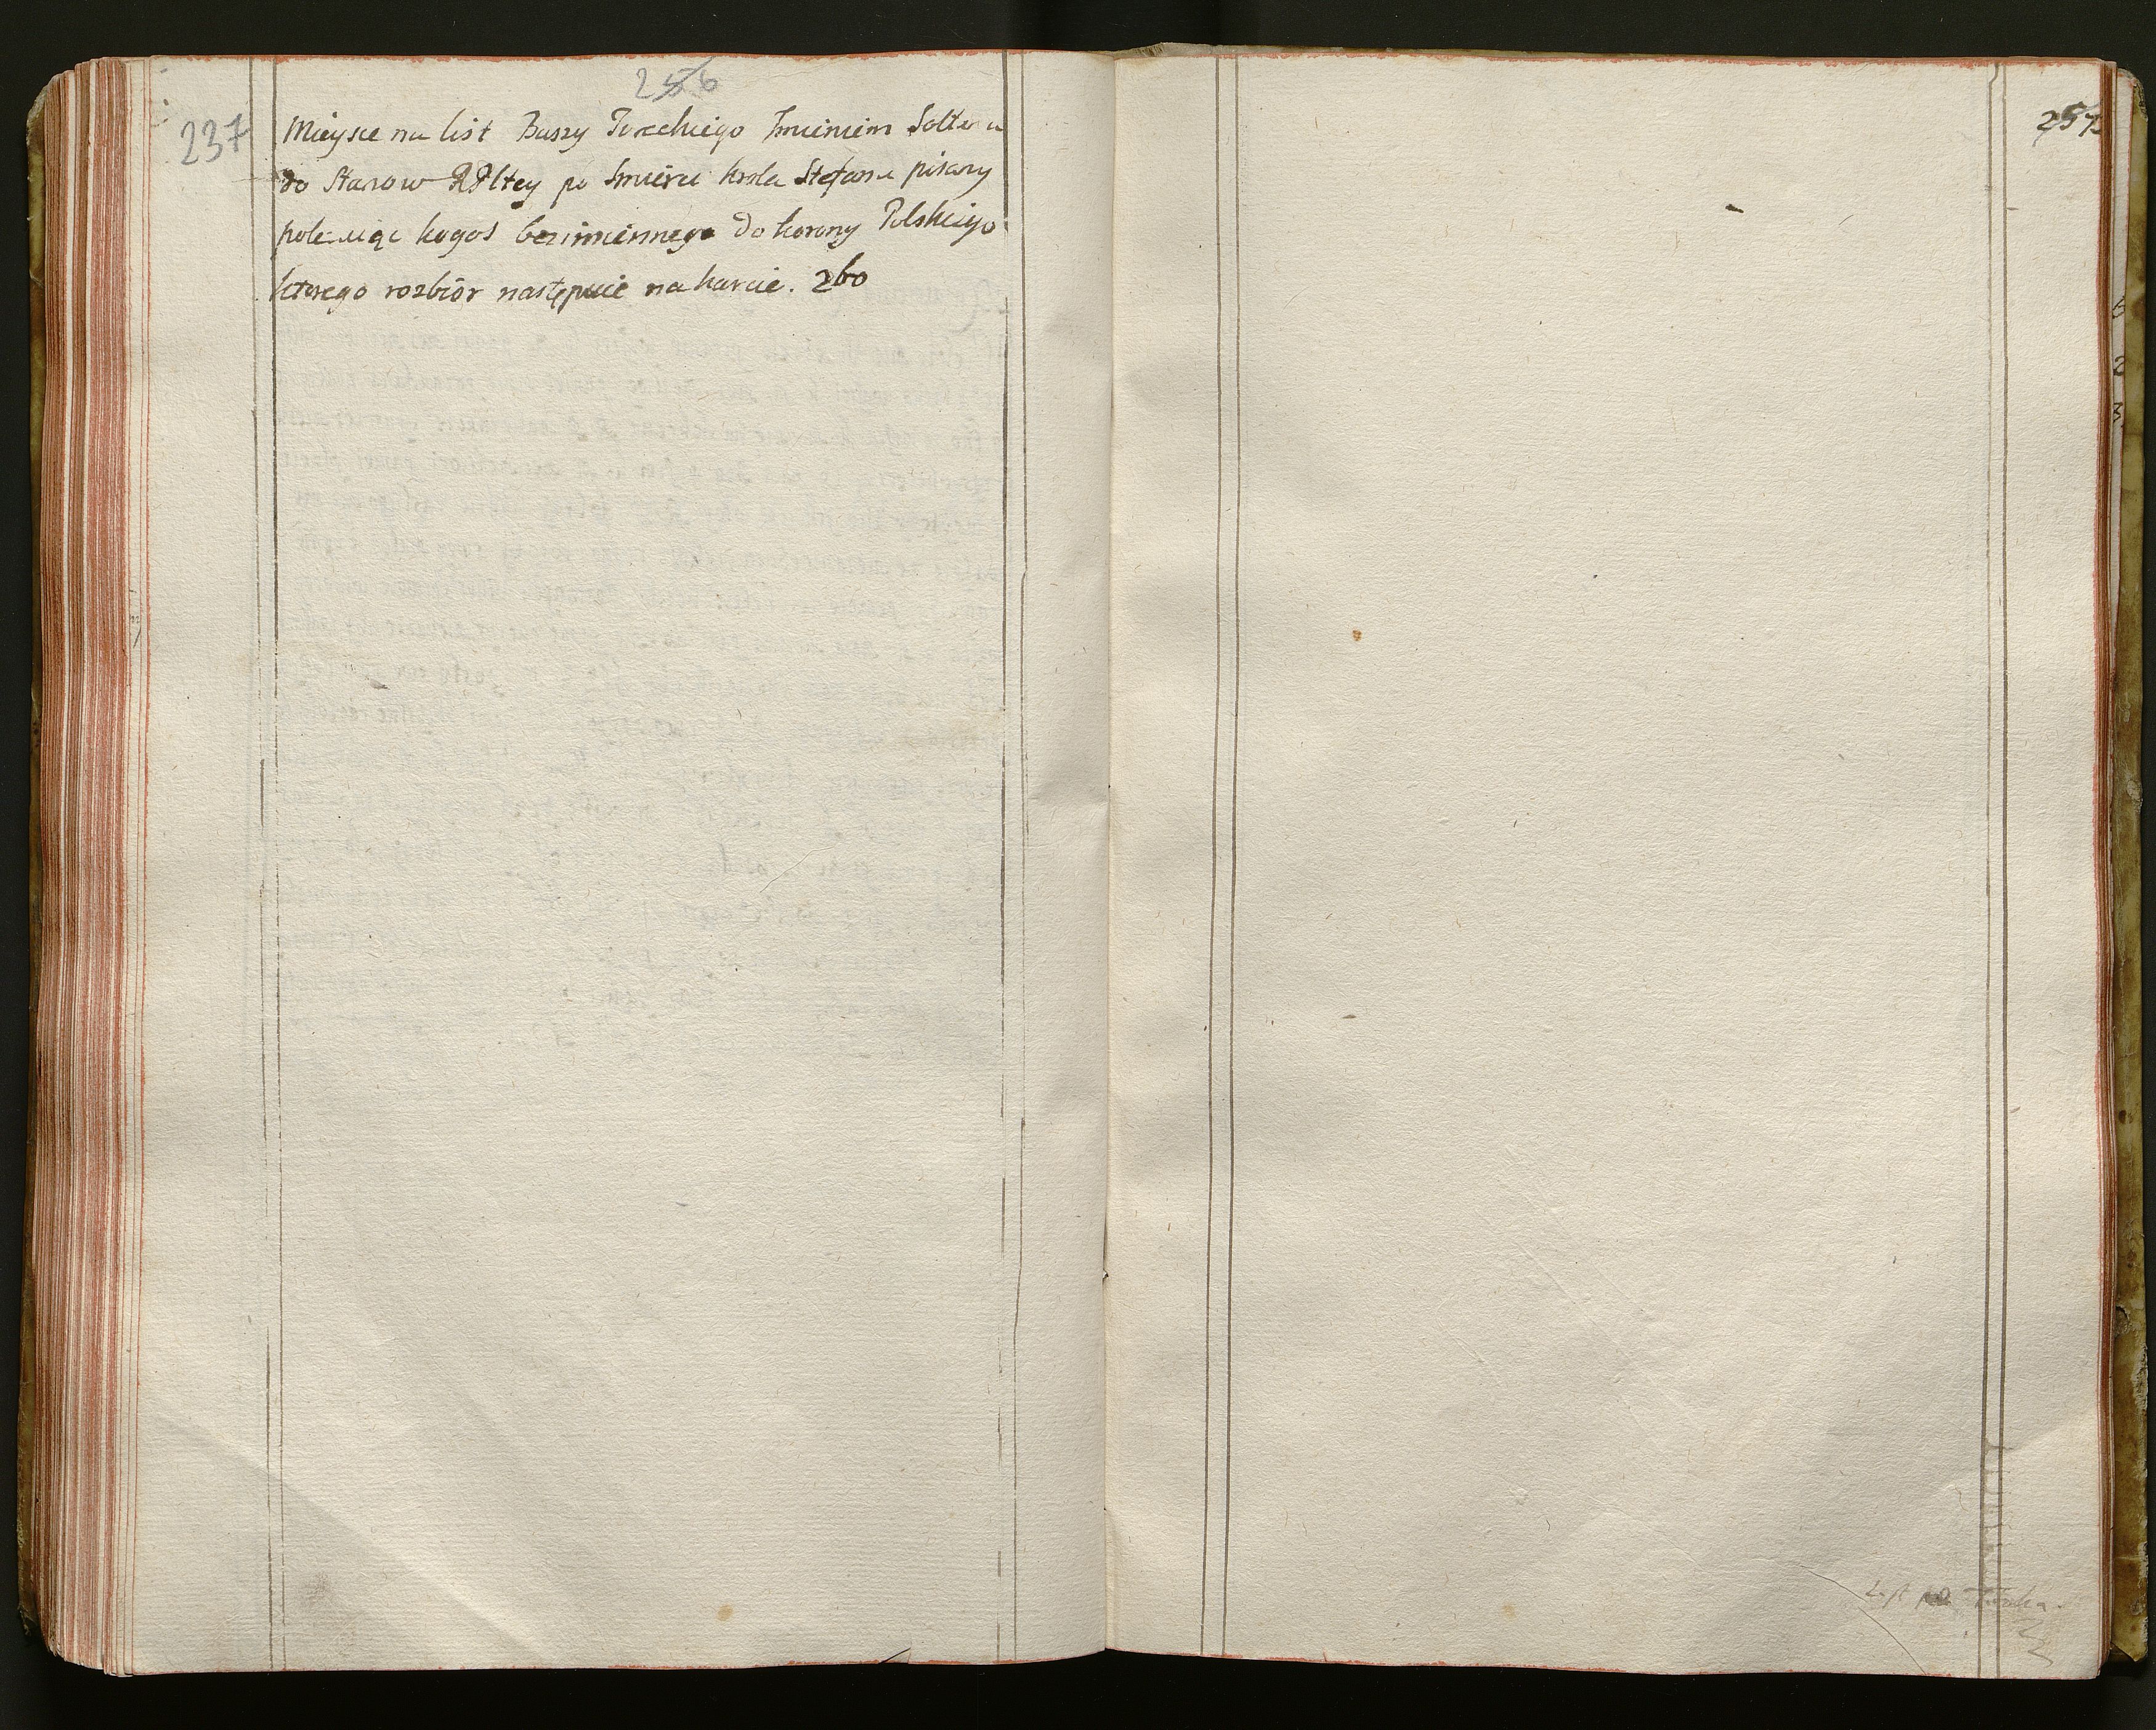 256
237
Mieysce na list Baszy Tureckiego Imieniem Soltana
do Stanow RPltey po Smierci krola Stefana pisany
polecaiąc kogos bezimiennego do korony Polskieyo
ktorego rozbior następuie na karcie. 260
257
List